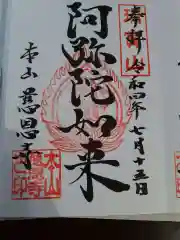 奉拝
令和四年七月十五日
阿弥陀如来
本山 慈恩寺
本山
慈恩寺